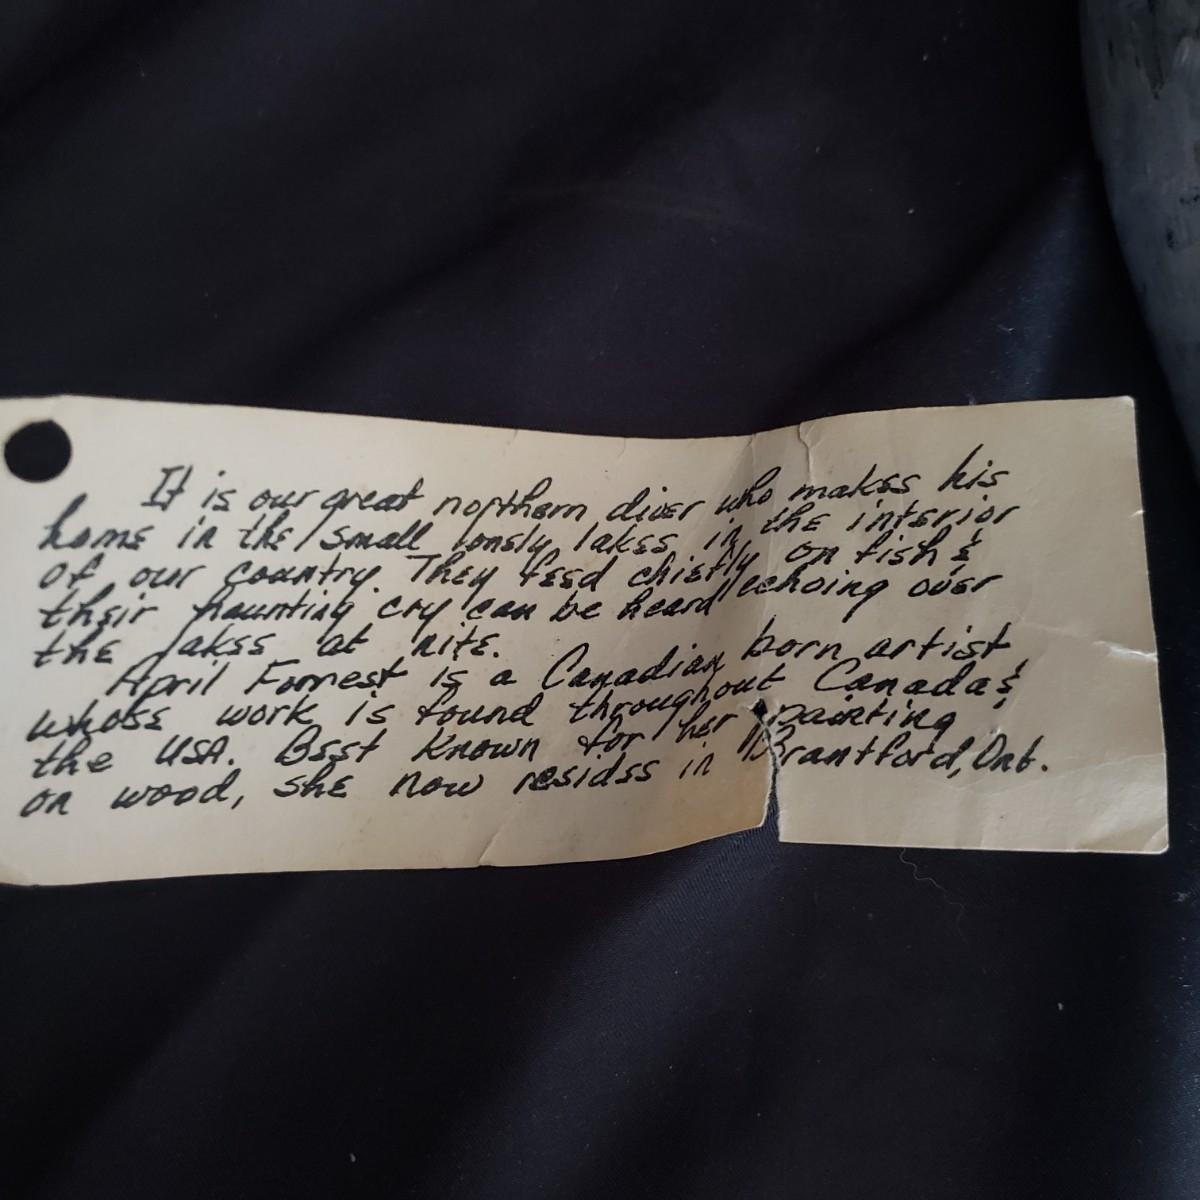 It is our great northern diver who makes his
home in the small lonely lakes in the interior
of our country. They feed chiefly on fish &
their haunting cry can be heard echoing over
the lakes at nite.
April Forrest is a Canadian born artist
whose work is found throughout Canada &
the USA. Best known for her painting
on wood, she now resides in Brantford, Ont.